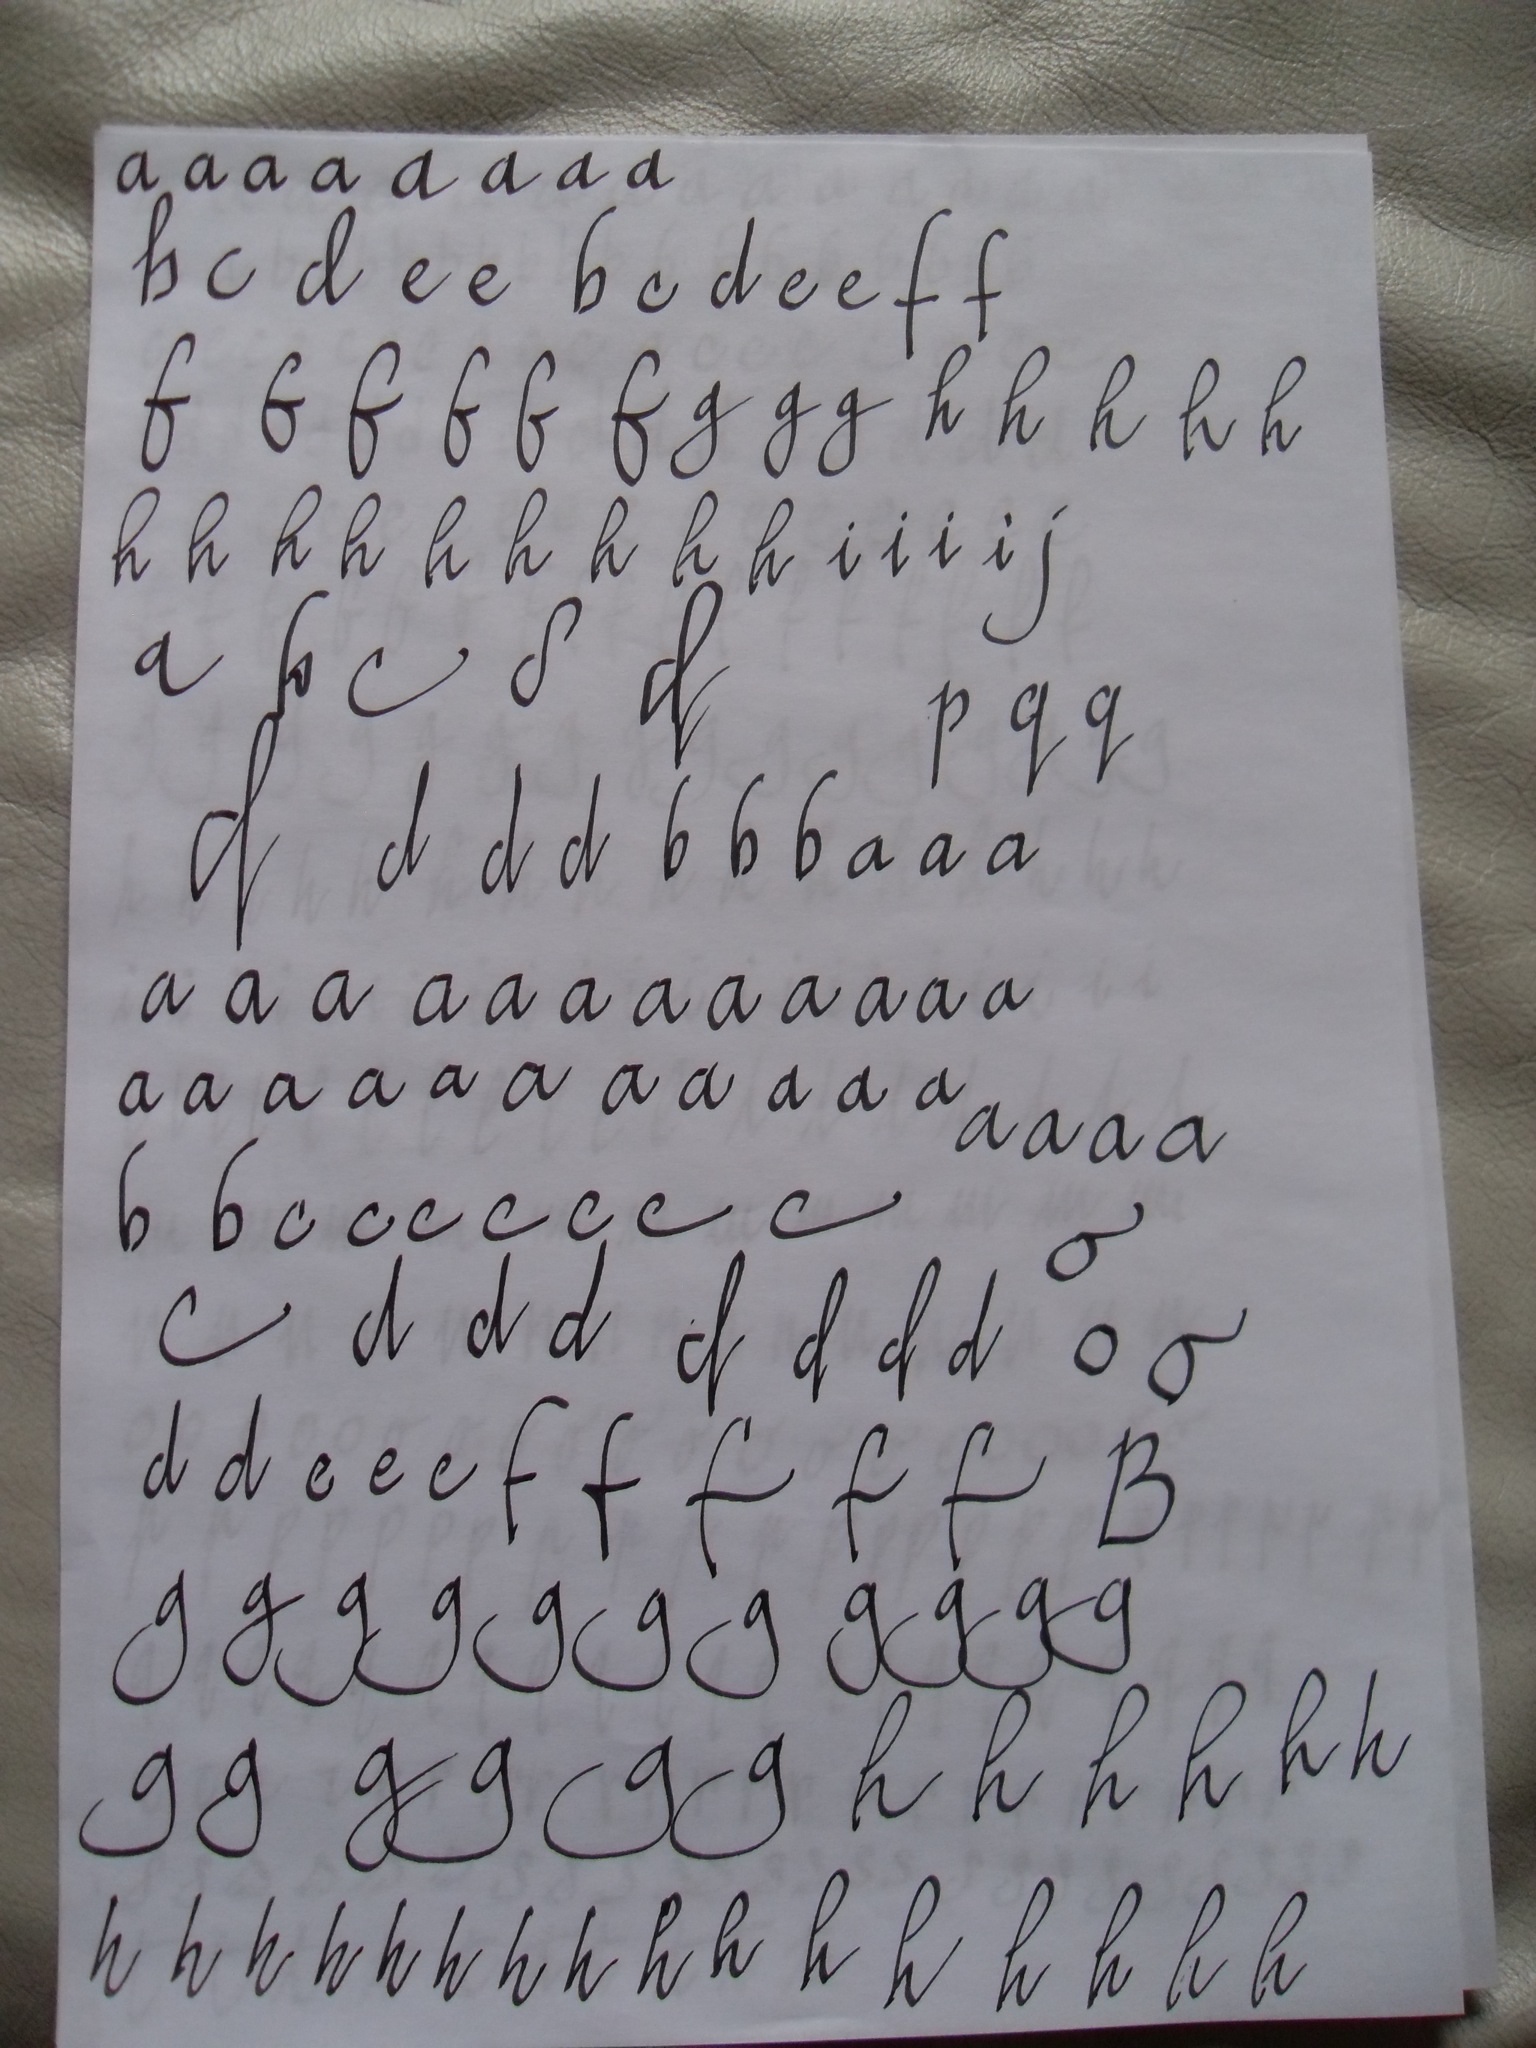 a a a a a a a a
b c d e e b c d e e f f
f f f f f f g g g h h h h h
h h h h h h h h h i i i i j
a b c d d p q q
d d d d b b b a a a
a a a a a a a a a a a a
a a a a a a a a a a a a a a a
b b c c c c c c c o
c d d d d d d d o o
d d e e e f f f f f B
g g g g g g g g g g g
g g g g g g h h h h h h
h h h h h h h h h h h h h h h h